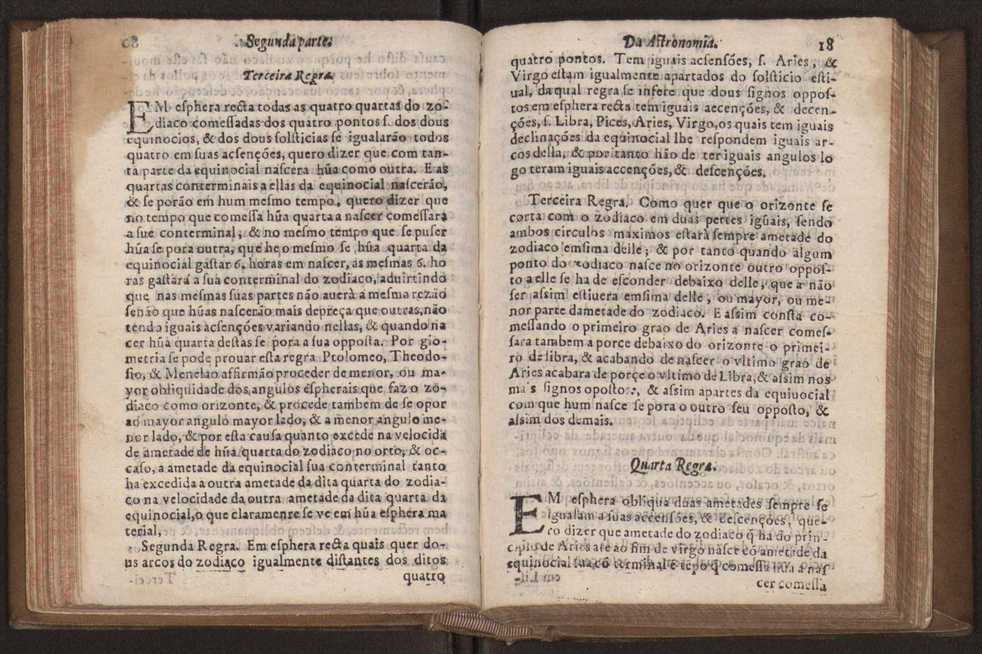 Segunda parte.
Terceira Regra.
EM esphera recta todas as quatro quartas do zo-
diaco comessadas dos quatro pontos s. dos dous
equinocios, & dos dous solsticias se igualarão todos
quatro em suas acsenções, quero dizer que com tan-
ta parte da equinocial nascera hũa como outra. E as
quartas conterminais a ellas da equinocial nascerão,
& se porão em hum mesmo tempo, quero dizer que
no tempo que comessa hũa quarta a nascer comessara
a sue conterminal; & no mesmo tempo que se puser
hũa se pora outra, que he o mesmo se hũa quarta da
equinocial gastar 6. horas em nascer, as mesmas 6. ho
ras gastará a sua conterminal do zodiaco, aduirtindo
que nas mesmas suas partes não auerà a mesma rezão
senão que hũas nascerão mais depreça que outras, não
tendo iguais acsenções variando nellas, & quando na
cer hũa quarta destas se pora a sua opposta. Por gio-
metria se pode prouar esta regra Ptolomeo, Theodo-
sio, & Menelao affirmão proceder de menor, ou ma-
yor obliquidade dos angulos espherais que faz o zo-
diaco como orizonte, & procede tambem de se opor
ao mayor angulo mayor lado, & a menor angulo me-
nor lado, & por esta causa quanto excede na velocida
de ametade de hũa quarta do zodiaco no orto, & oc-
caso, a ametade da equinocial sua conterminal tanto
ha excedida a outra ametade da dita quarta do zodia-
co na velocidade da outra ametade da dita quarta da
equinocial, o que claramente se ve em hũa esphera ma
terial,
Segunda Regra. Em esphera recta quais quer do-
us arcos do zodiaco igualmente distantes dos ditos
quatro
Da Astronomia.
18
quatro pontos. Tem iguais acsensões, s. Aries, &
Virgo estam igualmente apartados do solsticio esti-
ual, da qual regra se infere que dous signos oppos-
tos em esphera recta tem iguais accenções, & decen-
ções, s. Libra, Pices, Aries, Virgo, os quais tem iguais
declinações da equinocial lhe respondem iguais ar-
cos della, & por tanto hão de ter iguais angulos lo
go teram iguais accenções, & descenções.
Terceira Regra. Como quer que o orizonte se
corta com o zodiaco em duas pertes igũais, sendo
ambos circulos maximos estarà sempre ametade do
zodiaco emsima delle; & por tanto quando algum
ponto do zodiaco nasce no orizonte outro oppos-
to a elle se ha de esconder debaixo delle, que a não
ser assim estiuera emsima delle, ou mayor, ou me-
nor parte dametade do zodiaco. E assim consta co-
messando o primeiro grao de Aries a nascer comes-
sara tambem a porce debaixo do orizonte o primei-
ro de libra, & acabando de nascer o vltimo grao de
Aries acabara de porçe o vltimo de Libra, & assim nos
mais signos oposto:, & assim apartes da equiuocial
com que hum nasce se pora o outro seu opposto, &
assim dos demais.
Quarta Regra.
EM esphera obliqua duas ametades sempre se
igualam a suas accensões, & descenções, que-
ro dizer que ametade do zodiaco q̃ ha do prin-
cipio de Aries ate ao fim de virgo nasce cõ ametade da
equinocial sua cõ terminal e tẽpo q̃ comessa hũa a nas
cer comessa